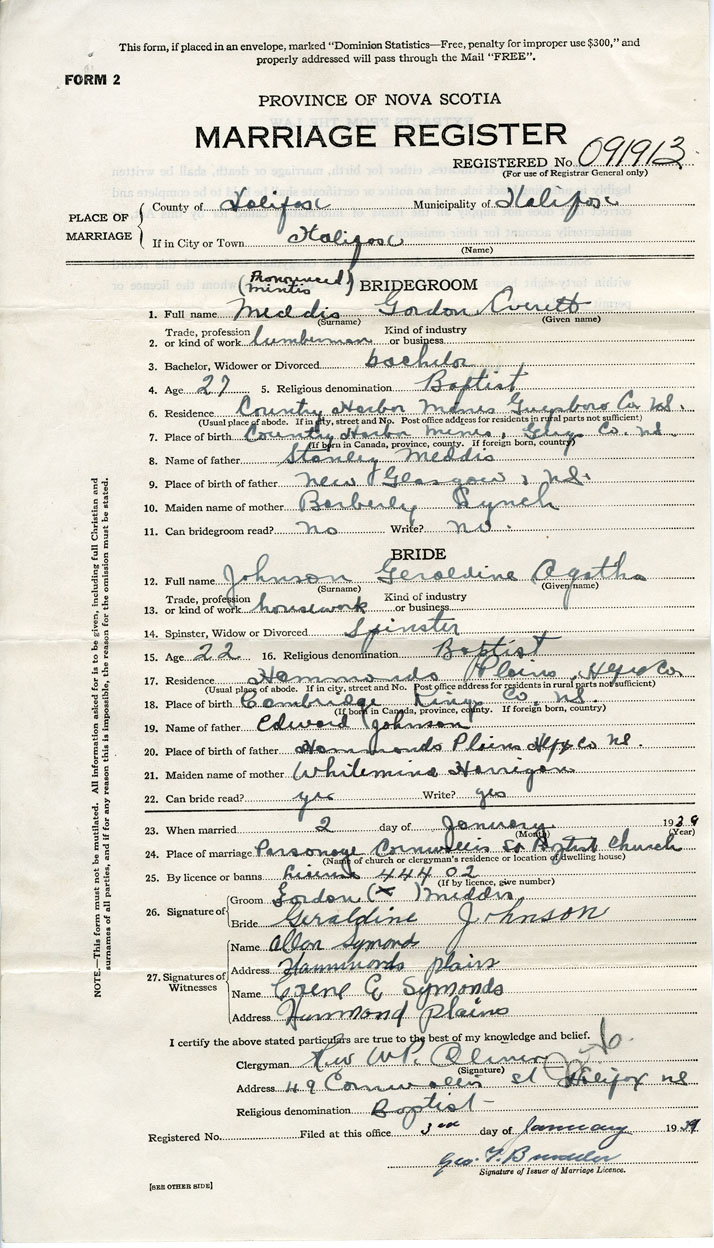 This form, if placed in an envelope, marked "Dominion Statistics—Free, penalty for improper use $300," and
properly addressed will pass through the Mail "FREE".
FORM 2
PROVINCE OF NOVA SCOTIA
MARRIAGE REGISTER
REGISTERED No. 091913
(For use of Registrar General only)
PLACE OF MARRIAGE
County of Halifax Municipality of Halifax
If in City or Town Halifax
(Name)
(Pronounced mintis) BRIDEGROOM
1. Full name Meddis Gordon Everett
(Surname) (Given name)
2. Trade, profession or kind of work lumberman Kind of industry or business
3. Bachelor, Widower or Divorced bachelor
4. Age 27 5. Religious denomination Baptist
6. Residence Country Harbor Mines Guysboro Co N.S.
(Usual place of abode. If in city, street and No. Post office address for residents in rural parts not sufficient)
7. Place of birth Country Harbor Mines, Guy. Co. N.S.
(If born in Canada, province, county. If foreign born, country)
8. Name of father Stanley Meddis
9. Place of birth of father New Glasgow, N.S.
10. Maiden name of mother Berberly Lynch
11. Can bridegroom read? no Write? no.
BRIDE
12. Full name Johnson Geraldine Agatha
(Surname) (Given name)
13. Trade, profession or kind of work housework Kind of industry or business
14. Spinster, Widow or Divorced Spinster
15. Age 22 16. Religious denomination Baptist
17. Residence Hammonds Plains, Hfx Co
(Usual place of abode. If in city, street and No. Post office address for residents in rural parts not sufficient)
18. Place of birth Cambridge Kings Co. N.S.
(If born in Canada, province, county. If foreign born, country)
19. Name of father Edward Johnson
20. Place of birth of father Hammonds Plains Hfx Co N.S.
21. Maiden name of mother Whitemina Harrigan
22. Can bride read? yes Write? yes
23. When married 2 day of January 1939
(Month) (Year)
24. Place of marriage Parsonage Cornwallis St Bptist Church
(Name of church or clergyman's residence or location of dwelling house)
25. By licence or banns License 44402
(If by licence, give number)
26. Signature of
Groom Gordon (x) Meddis
Bride Geraldine Johnson
27. Signatures of Witnesses
Name Allan Symonds
Address Hammonds plain
Name Symonds
Address Hammond plains
I certify the above stated particulars are true to the best of my knowledge and belief.
Clergyman Rev W.P. Oliver
(Signature)
Address 49 Cornwallis St Halifax NS
Religious denomination Baptist
Registered No. Filed at this office 3rd day of January 1939
Geo. F.
Signature of Issuer of Marriage Licence.
[SEE OTHER SIDE]
NOTE.—This form must not be mutilated. All information asked for is to be given, including full Christian and
surnames of all parties, and if for any reason this is impossible, the reason for the omission must be stated.